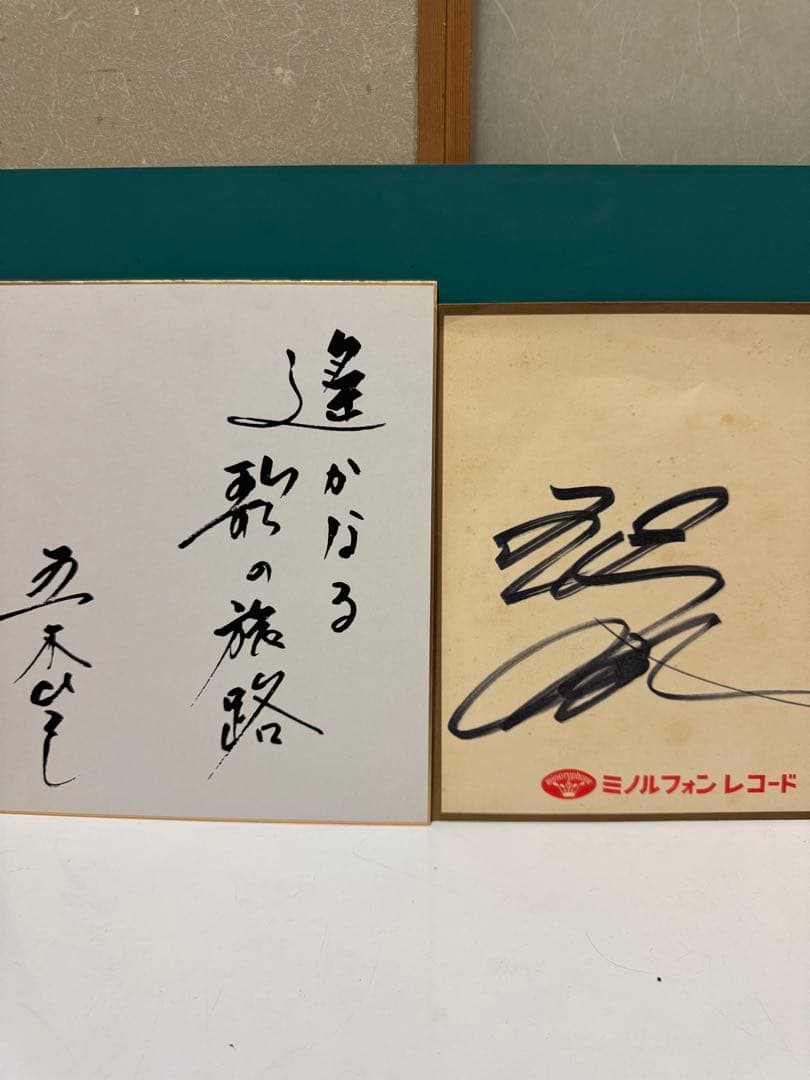 遥かなる
歌の旅路
五木ひろし
minoryphone
ミノルフォン レコード